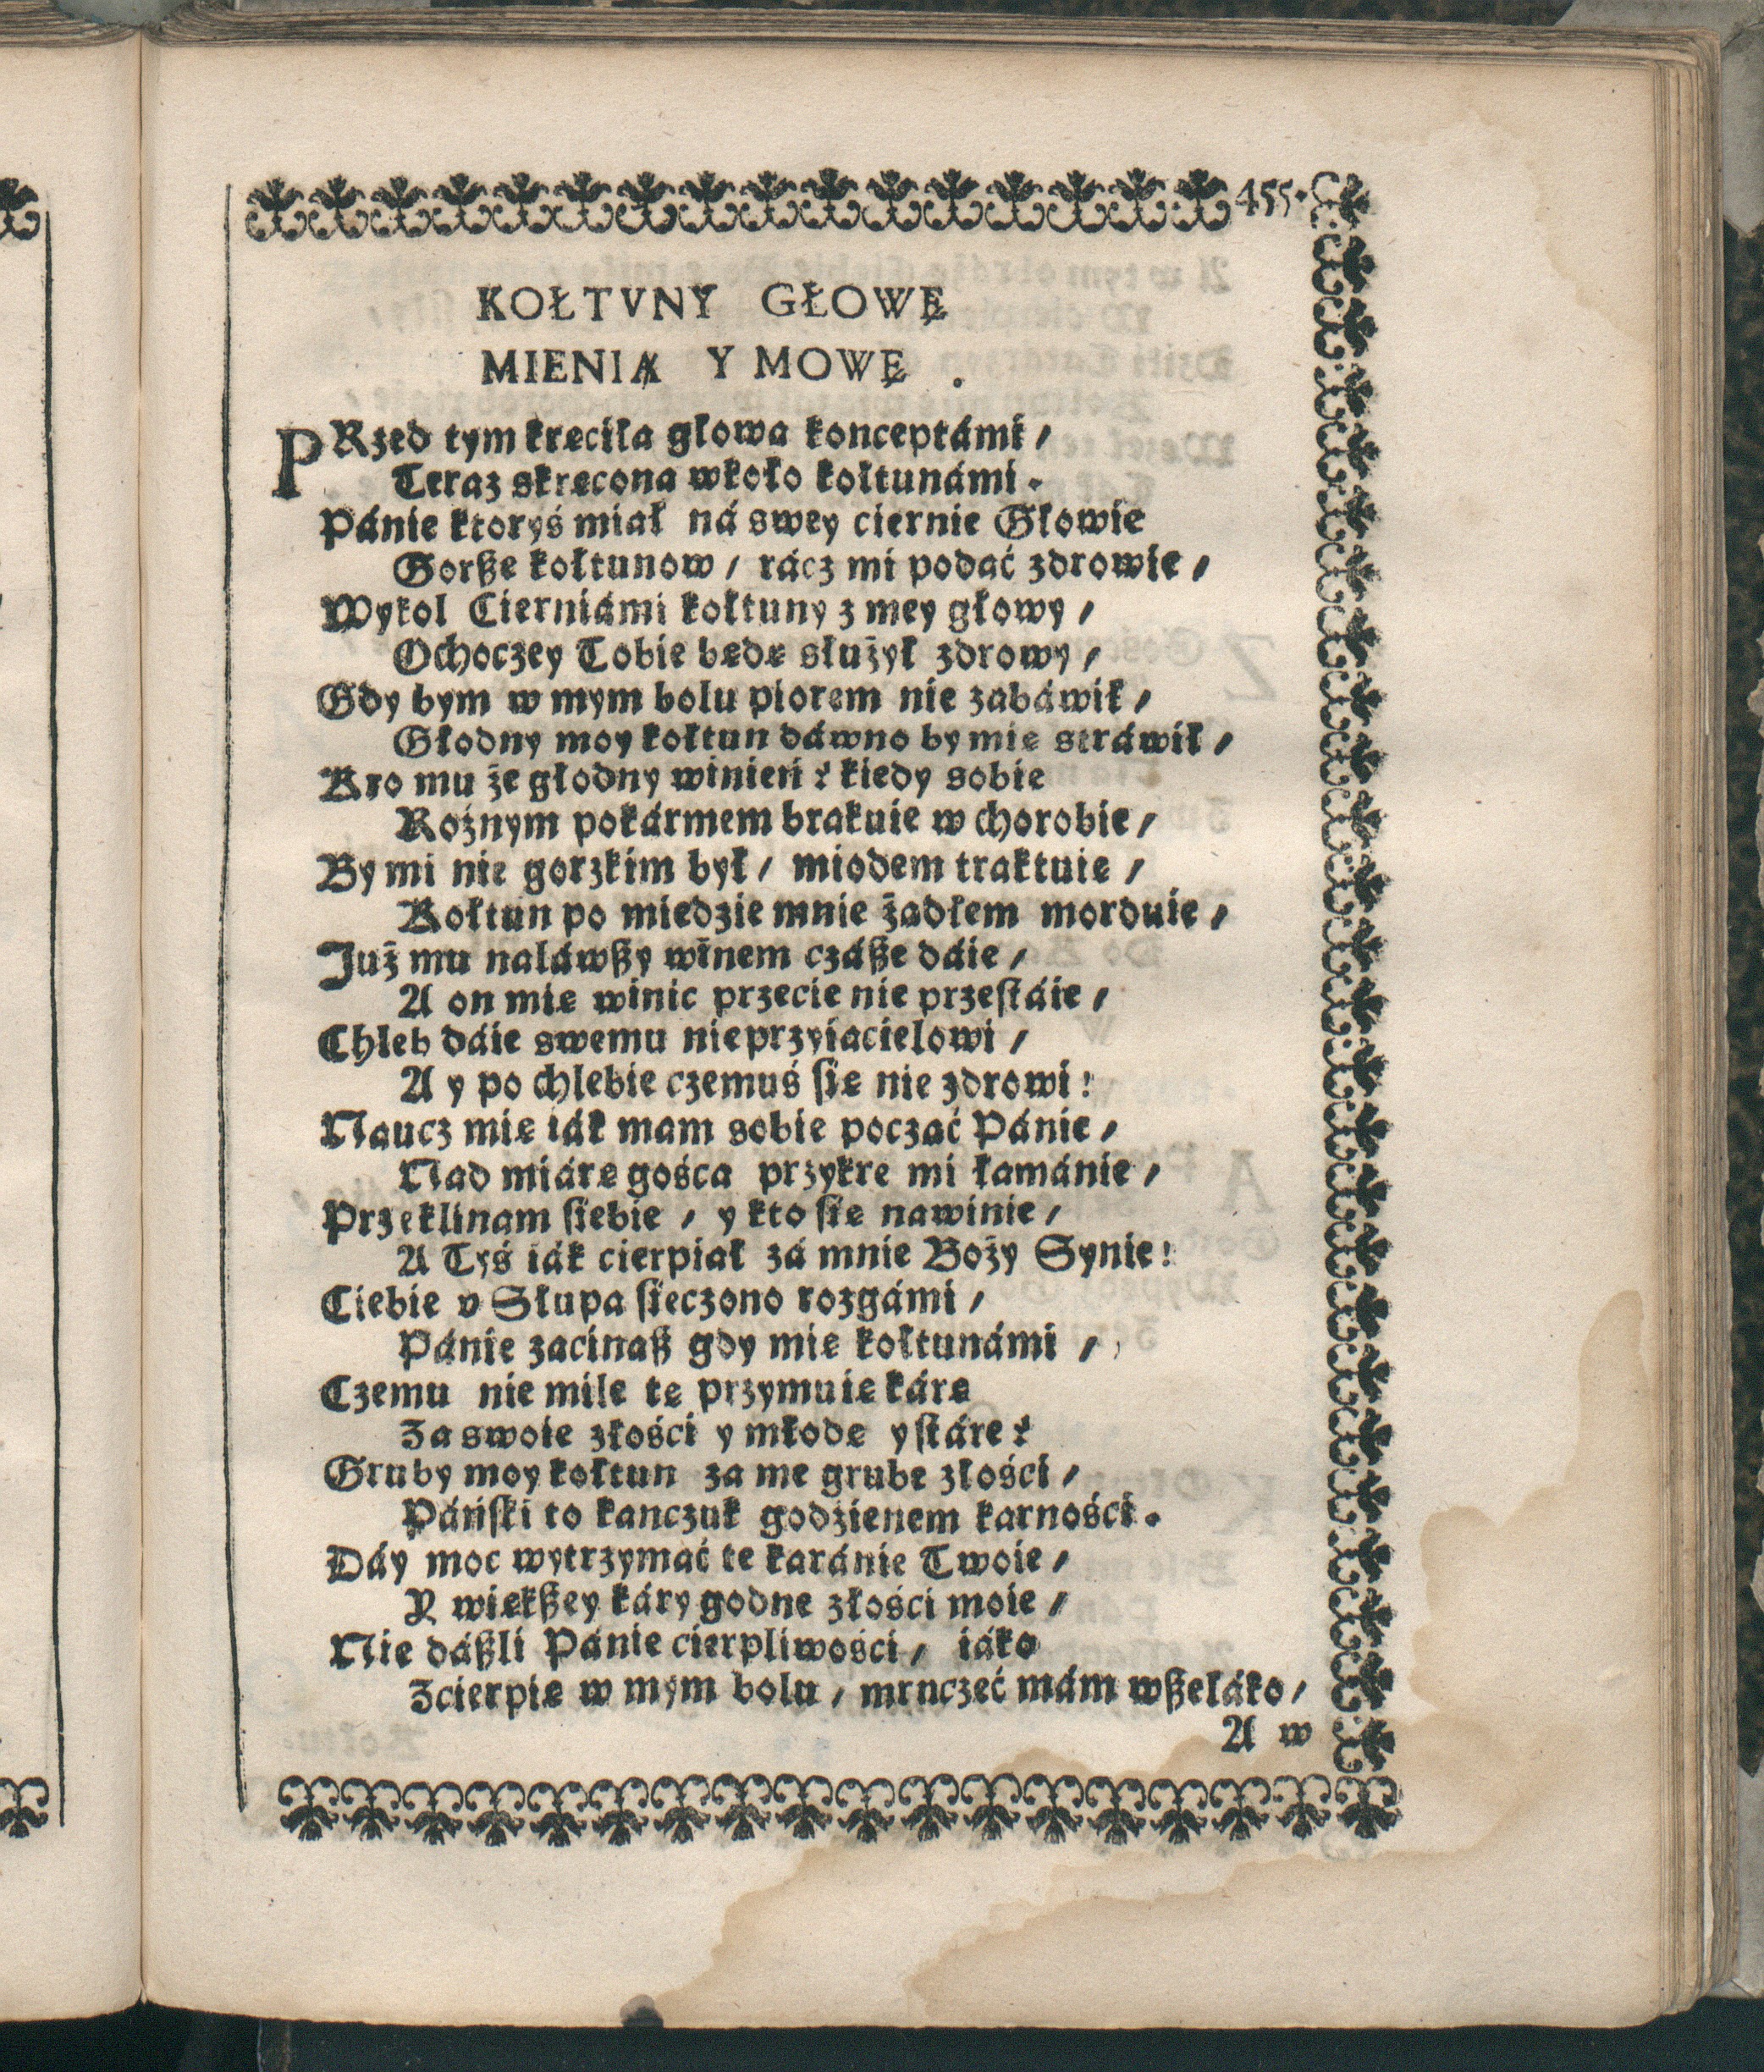 455.
KOŁTVNY GŁOWĘ
MIENIĄ Y MOWĘ.
PRzed tym kręciła głowa konceptámi /
Teraz skręcona wkoło kołtunámi.
Pánie ktoryś miał ná swey ciernie Głowie
Gorße kołtunow / rácz mi podáć zdrowie /
Wykol Cierniámi kołtuny z mey głowy /
Ochoczey Tobie będę służył zdrowy /
Gdy bym w mym bolu piorem nie zabáwił /
Głodny moy kołtun dáwno by mię stráwił /
Kto mu że głodny winień? kiedy sobie
Rożnym pokármem brakuie w chorobie /
By mi nie gorzkim był / miodem traktuię /
Kołtun po miedzie mnie żądłem morduie /
Już mu naláwßy winem czáßę dáię /
A on mię winic przecie nie przeſtáie /
Chleb dáię swemu nieprzyiacielowi /
A y po chlebie czemuś ſię nie zdrowi!
Naucz mię iák mam sobie począć Pánie /
Nad miárę gośca przykre mi łamánie /
Przeklinam ſiebie / y kto ſię nawinie /
A Tyś iák cierpiał zá mnie Boży Synie!
Ciebie v Słupa ſieczono rozgámi /
Pánie zacinaß gdy mię kołtunámi /
Czemu nie mile tę przymuię kárę
Za swoie złości y młode y ſtáre?
Gruby moy kołtun za me grube złości /
Páńſki to kanczuk godzienem karności.
Dáy moc wytrzymać te karánie Twoie /
Y więkßey káry godne złości moie /
Nie dáßli Pánie cierpliwości / iáko
Zcierpię w mym bolu / mrnczeć mám wßeláko /
A w